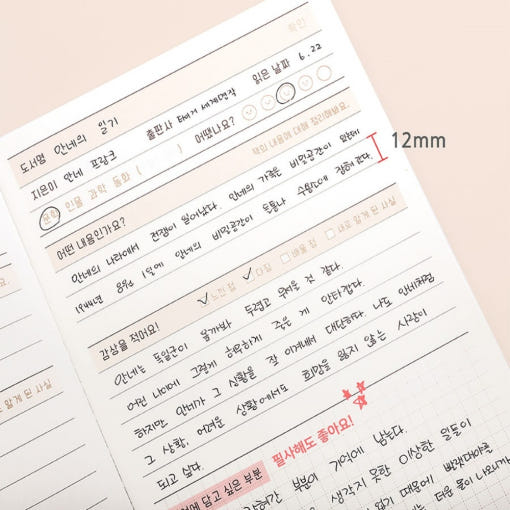 확인
도서명 안네의 일기
읽은 날짜 6.22
지은이 안네 프랑크 출판사
문학 인물 과학 동화 ( ) 어땠나요?
어떤 내용인가요? 책의 내용에 대해 정리해봐요.
12mm
안네의 나라에서 전쟁이 일어났다. 안네의 가족은 비밀공간이 있는데
1944년 8월 1일에 안네의 비밀공간이 들통나 수용소에 잡혀 갔다.
감상을 적어요! 느낀 점 다짐 배울 점 새로 알게 된 사실
안네는 독일군이 올까봐 두렵고 무서울 것 같다.
어린 나이에 그렇게 허무하게 죽은 게 안타깝다.
하지만 안네가 그 상황을 잘 이겨내서 대단하다. 나도 안네처럼
그 상황, 어려운 상황에서도 희망을 잃지 않는 사람이
되고 싶다.
필사해도 좋아요!
담고 싶은 부분
부분이 기억에 남는다.
생각지 못한 이상한 일들이
때문에
알게 된 사실